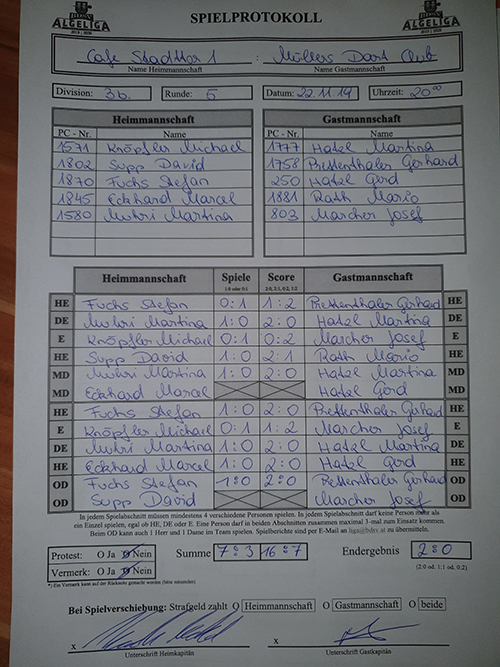 SPIELPROTOKOLL
Cafe Stadttor 1 : Müllers Dart Club
Name Heimmannschaft Name Gastmannschaft
Division: 3b. Runde: 5 Datum: 22.11.19 Uhrzeit: 20⁰⁰
Heimmannschaft Gastmannschaft
PC - Nr. Name PC - Nr. Name
1571 Knöpfler Michael 1777 Hatzl Martina
1802 Supp David 1758 Prettenthaler Gerhard
1870 Fuchs Stefan 250 Hatzl Gerd
1845 Eckhard Marcel 1881 Rath Mario
1580 Muhri Martina 803 Marcher Josef
Heimmannschaft Spiele Score Gastmannschaft
1:0 oder 0:1 2:0, 2:1, 0:2, 1:2
HE Fuchs Stefan 0:1 1:2 Prettenthaler Gerhard HE
DE Muhri Martina 1:0 2:0 Hatzl Martina DE
E Knöpfler Michael 0:1 0:2 Marcher Josef E
HE Supp David 1:0 2:1 Rath Mario HE
MD Muhri Martina 1:0 2:0 Hatzl Martina MD
MD Eckhard Marcel Hatzl Gerd MD
HE Fuchs Stefan 1:0 2:0 Prettenthaler Gerhard HE
E Knöpfler Michael 0:1 1:2 Marcher Josef E
DE Muhri Martina 1:0 2:0 Hatzl Martina DE
HE Eckhard Marcel 1:0 2:0 Hatzl Gerd HE
OD Fuchs Stefan 1:0 2:0 Prettenthaler Gerhard OD
OD Supp David Marcher Josef OD
In jedem Spielabschnitt müssen mindestens 4 verschiedene Personen spielen. In jedem Spielabschnitt darf keine Person mehr als
ein Einzel spielen, egal ob HE, DE oder E. Eine Person darf in beiden Abschnitten zusammen maximal 3-mal zum Einsatz kommen.
Beim OD kann auch 1 Herr und 1 Dame im Team spielen. Spielberichte sind per E-Mail an liga@bdsv.at zu übermitteln.
Protest: O Ja O Nein Summe 7:3 16:7 Endergebnis 2:0
Vermerk: O Ja O Nein (2:0 od. 1:1 od. 0:2)
*) Ein Vermerk kann auf der Rückseite gemacht werden (bitte ankreuzen)
Bei Spielverschiebung: Strafgeld zahlt O Heimmannschaft O Gastmannschaft O beide
x x
Unterschrift Heimkapitän Unterschrift Gastkapitän